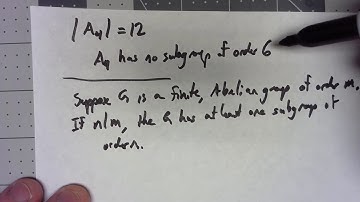 |A₄| = 12
A₄ has no subgroup of order 6
Suppose G is a finite, Abelian group of order m.
If n|m, the G has at least one subgroup of
order n.